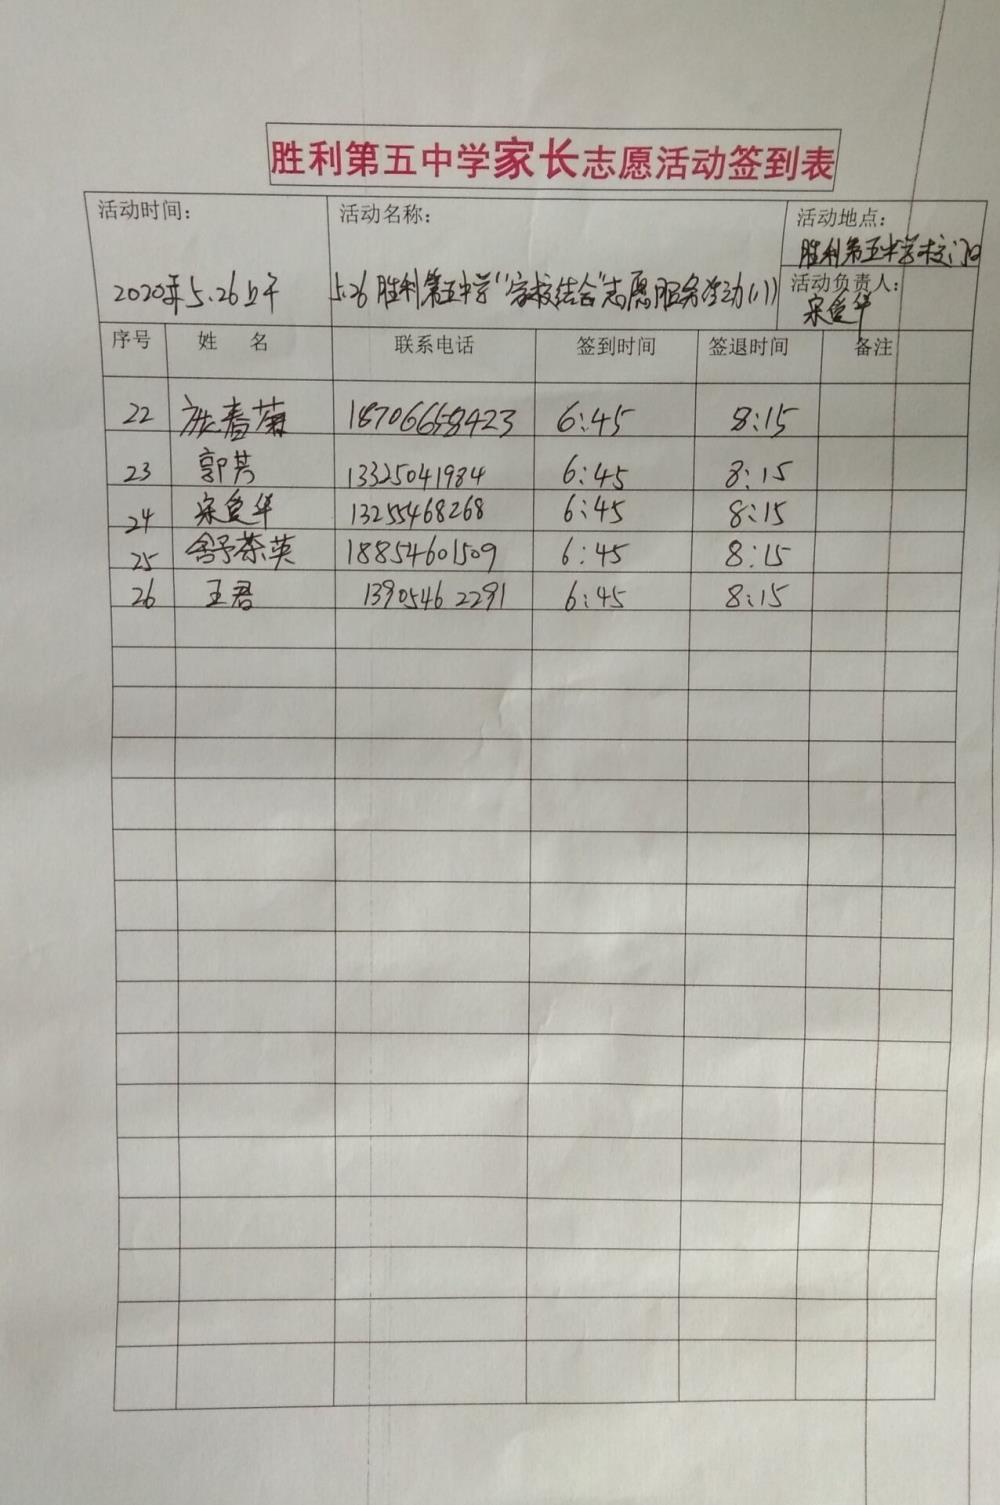 胜利第五中学家长志愿活动签到表
活动时间： 活动名称： 活动地点：
胜利第五中学校门口
2020年5.26上午 5.26胜利第五中学“家校结合”志愿服务活动(1) 活动负责人：
宋爱华
序号 姓名 联系电话 签到时间 签退时间 备注
22 春菊 18706658423 6:45 8:15
23 郭芳 13325041984 6:45 8:15
24 宋爱华 13255468268 6:45 8:15
25 舒荣英 18854601509 6:45 8:15
26 王君 13905462291 6:45 8:15